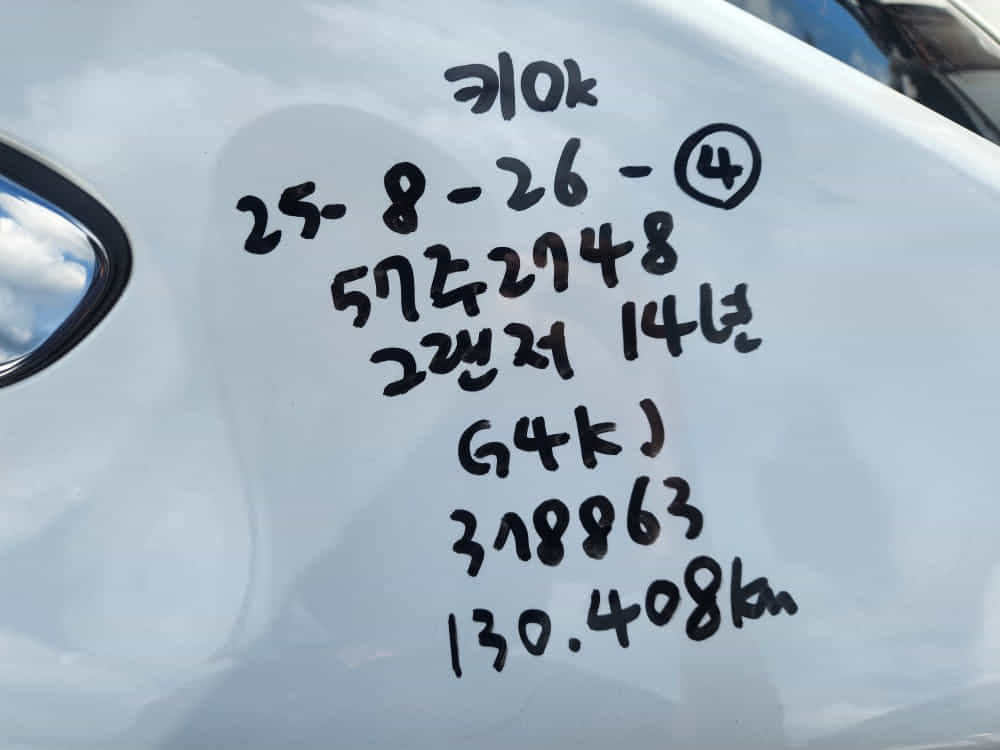 키ok
25-8-26-④
57주2748
그랜저 14년
G4KJ
378863
130.408km